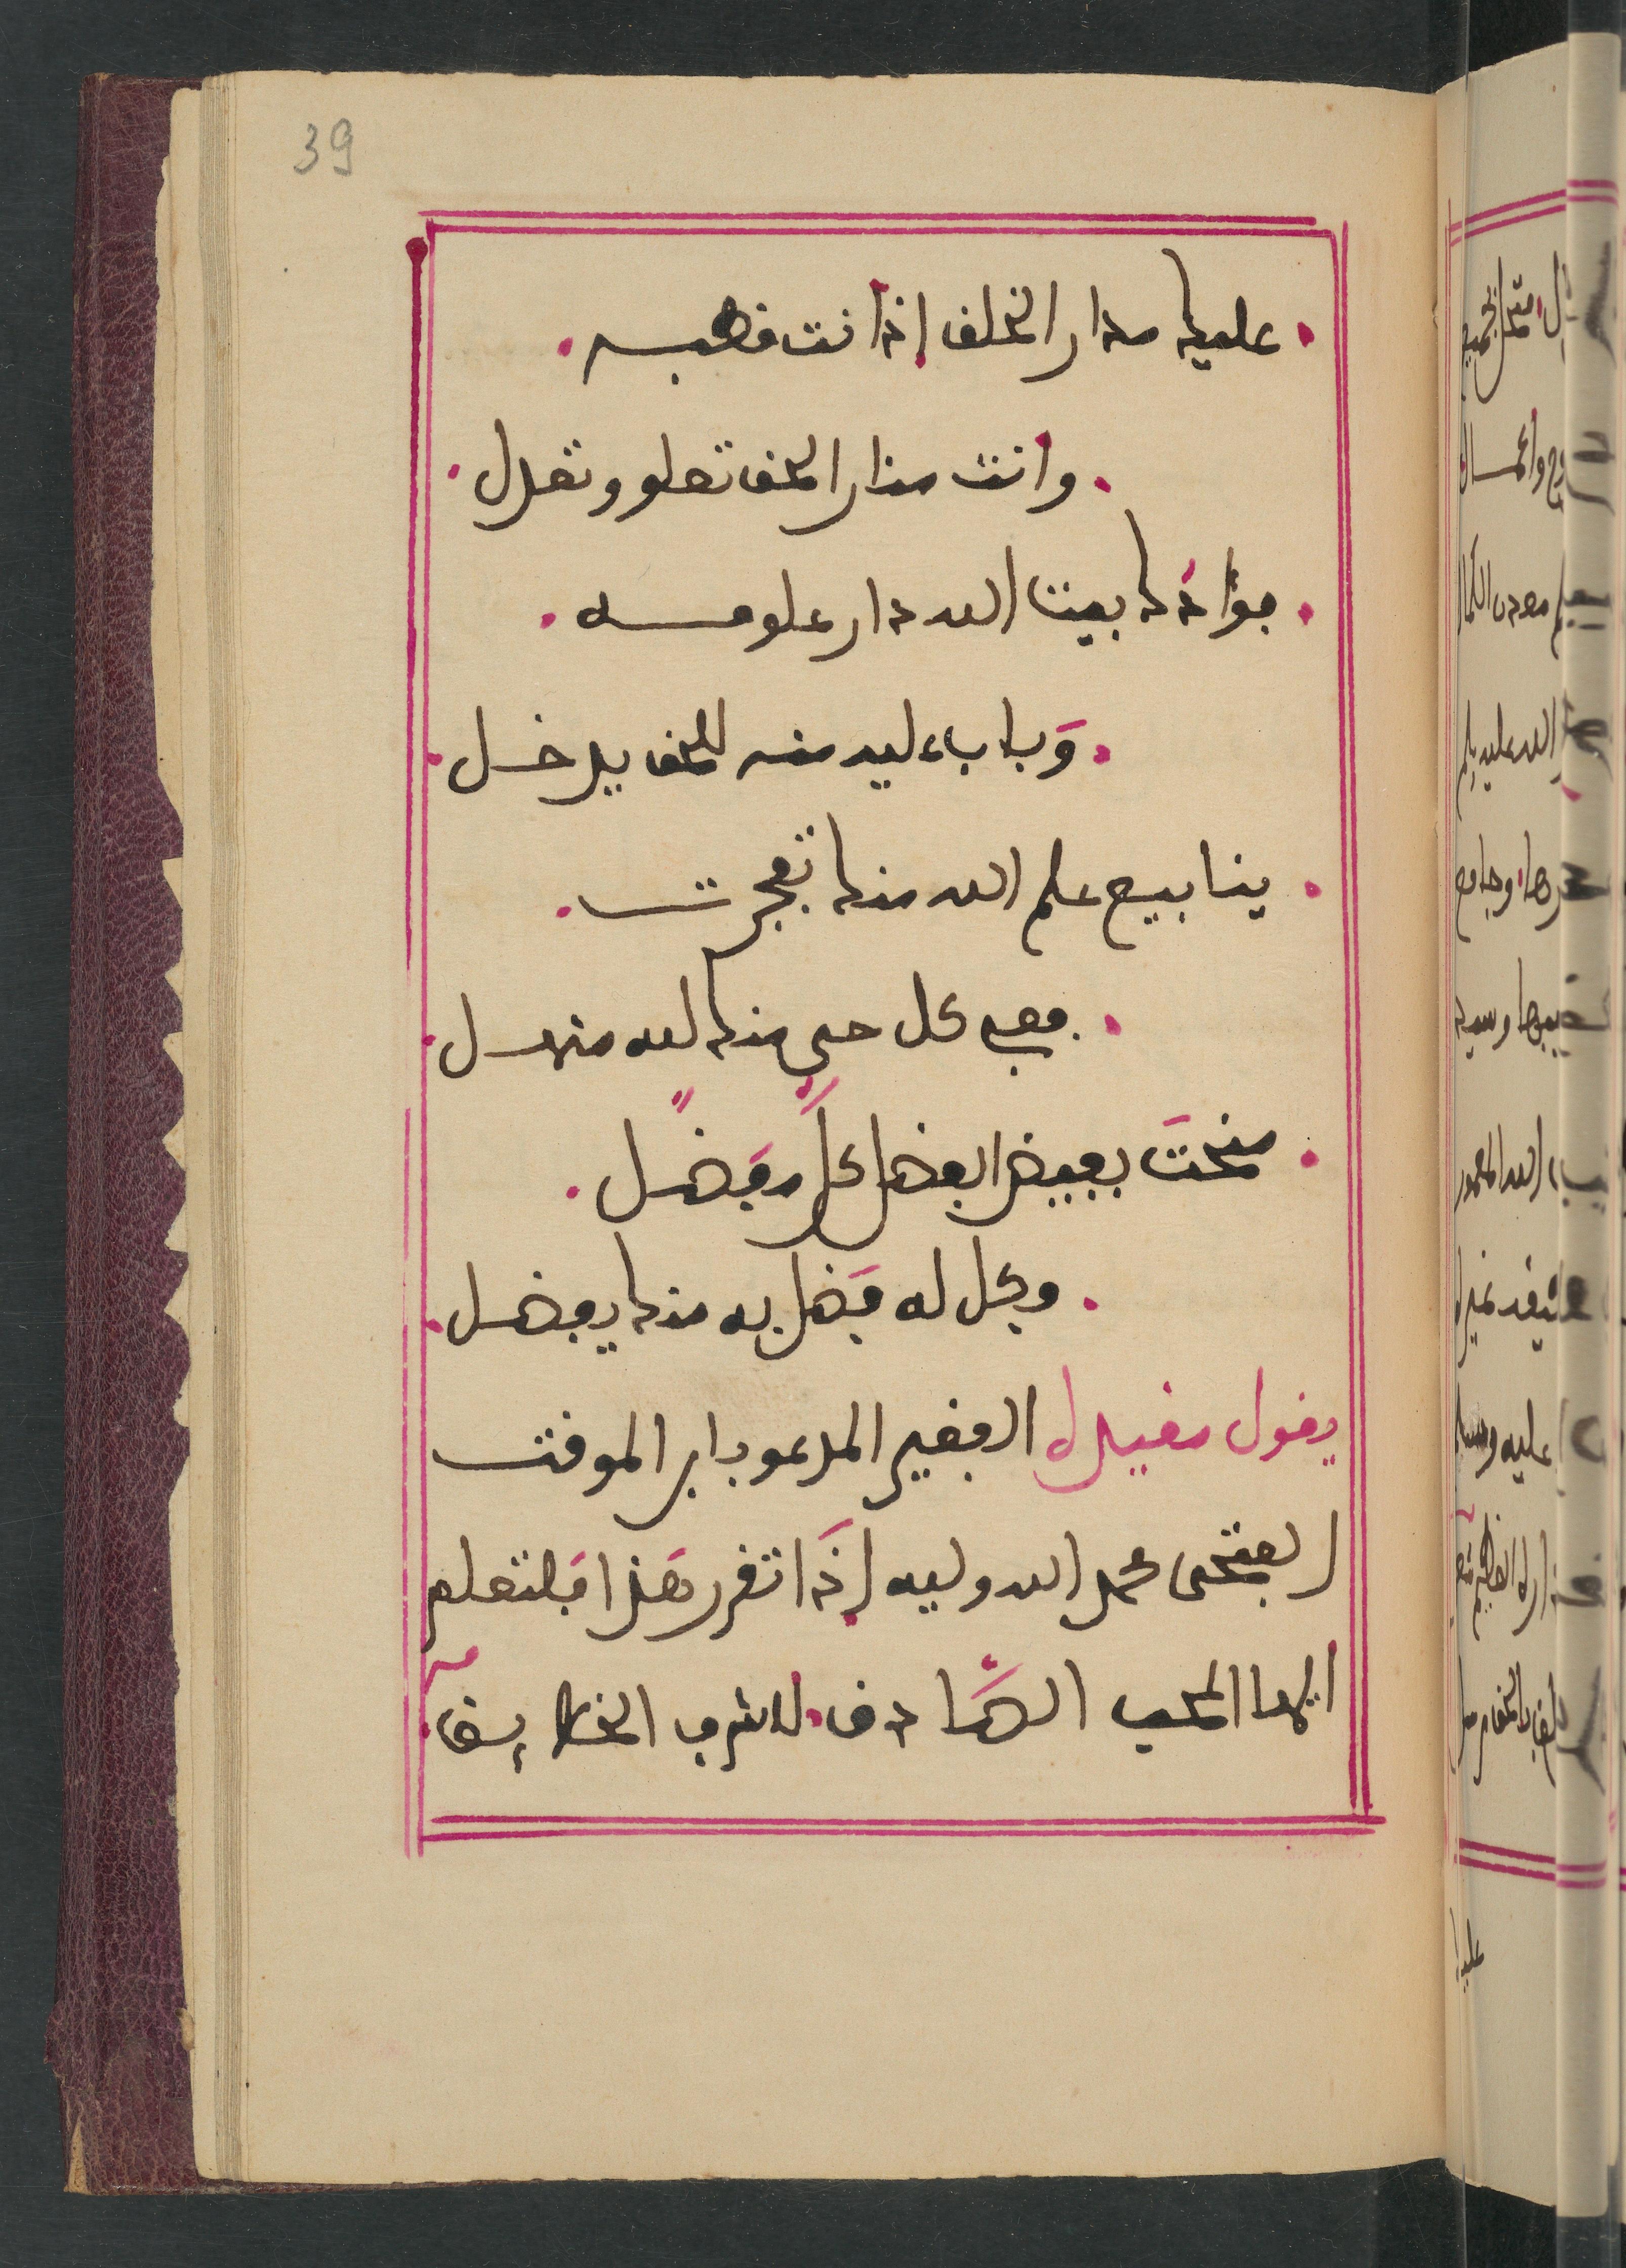 39
. عليك مدار الخلق إذ انت قطبه .
. وانت منار الحق تعلو وتعدل .
. فؤادك بيت الله دار علومه .
. وَباب عليه منه للحق يدخل .
. ينابيع علم الله منك تفجرت .
. ففي كل حي منك لله منهل .
. منحتَ بفيض الفضل كلَّ مفضَّل .
. وكل له فضل به منك يفضل .
يقول مقيده الفقير المدعو بابن الموقت
الفتحي محمد الله وليه إذا تقرر هذا فلتعلم
ايها المحب الصَّادق . لاشرف الخلآيق .